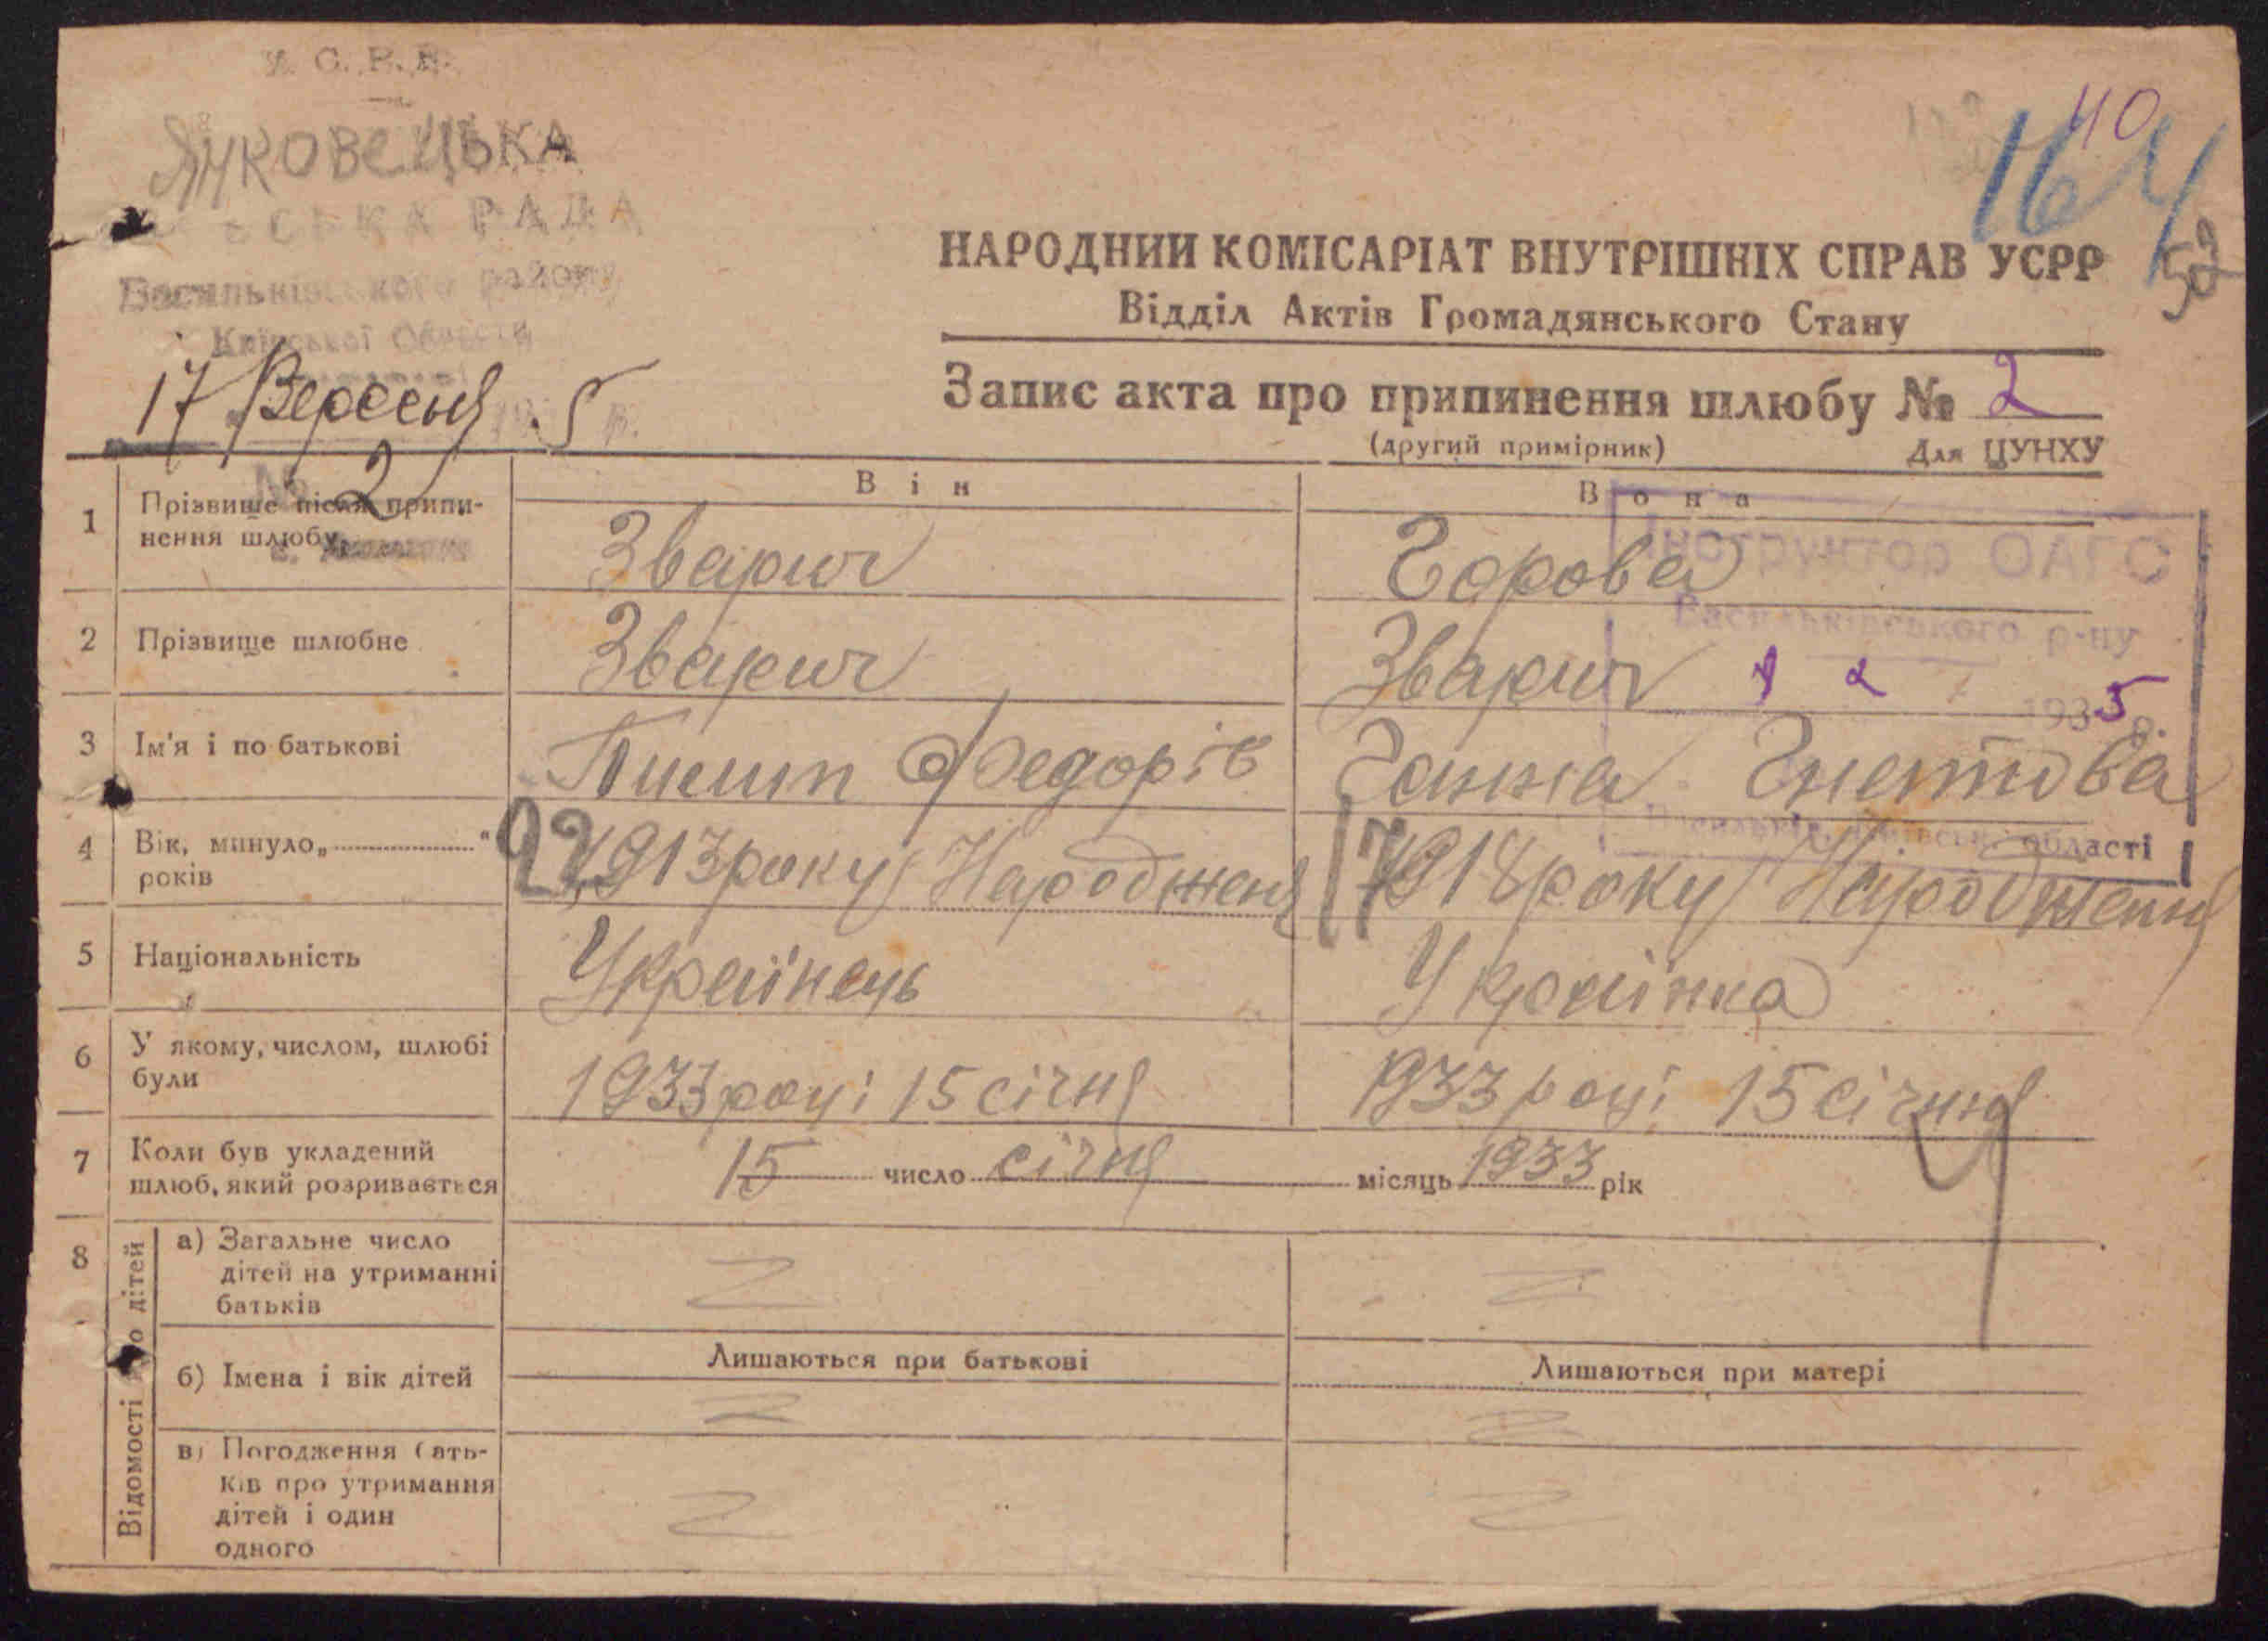 У. С. Р. Р.
ЯНКОВЕЦЬКА
СЬКА РАДА
Васильківського району
Київської Области
17 Вересня 5 р.
№ 2
40
164
52
НАРОДНИЙ КОМІСАРІАТ ВНУТРІШНІХ СПРАВ УСРР
Відділ Актів Громадянського Стану
Запис акта про припинення шлюбу № 2
(другий примірник) Для ЦУНХУ
Він Вона
Інструктор ОАГС
Васильківського р-ну
1935 р.
Васильків, Київськ. області
1 Прізвище після припи-
нення шлюбу Зварич Горова
2 Прізвище шлюбне Зварич Зварич
3 Ім'я і по батькові Пилип Федорів Ганна Гнатова
4 Вік, минуло „ “
років 22 1913 року Народженя 17 1918 року Народження
5 Національність Українець Українка
6 У якому, числом, шлюбі
були 1933 році 15 січня 1933 році 15 січня
7 Коли був укладений
шлюб, який розривається 15 число січня місяць 1933 рік
8 Відомості про дітей
а) Загальне число
дітей на утриманні
батьків
б) Імена і вік дітей
Лишаються при батькові Лишаються при матері
в) Погодження бать-
ків про утримання
дітей і один
одного